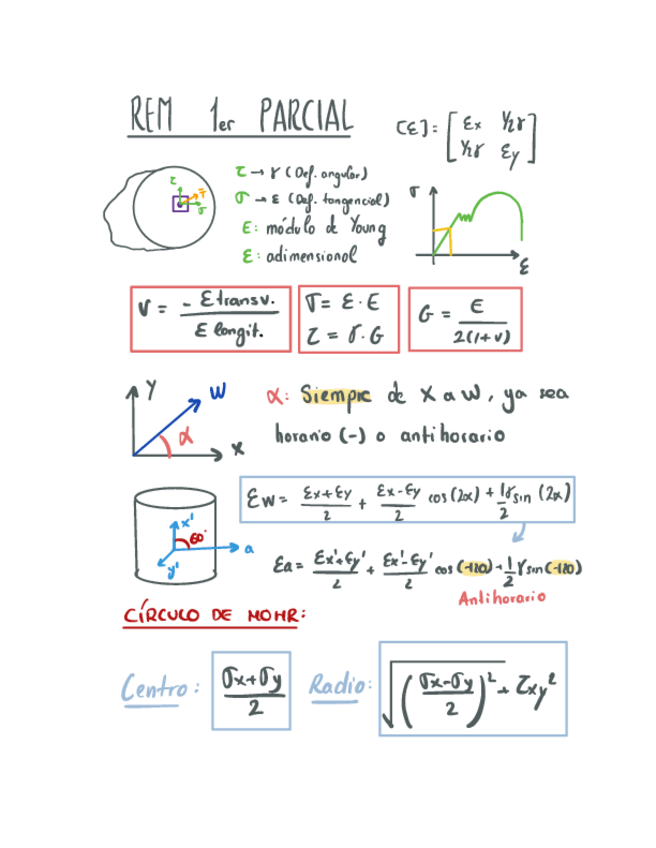 REM 1er PARCIAL
[ε]: [εx ½γ
½γ εy]
τ → γ (Def. angular)
σ → ε (Def. tangencial)
E: módulo de Young
ε: adimensional
τ
σ
σ
ε
ν = - ε transv. / ε longit.
σ = ε · E
τ = γ · G
G = E / 2(1+ν)
y
w
α
x
α: Siempre de x a w, ya sea
horario (-) o antihorario
εw = εx+εy / 2 + εx-εy / 2 cos (2α) + 1/2 γ sin (2α)
x'
60°
a
y'
εa = εx'+εy' / 2 + εx'-εy' / 2 cos (-120) + 1/2 γ sin (-120)
Antihorario
CÍRCULO DE MOHR:
Centro: σx+σy / 2
Radio: √(σx-σy / 2)² + τxy²